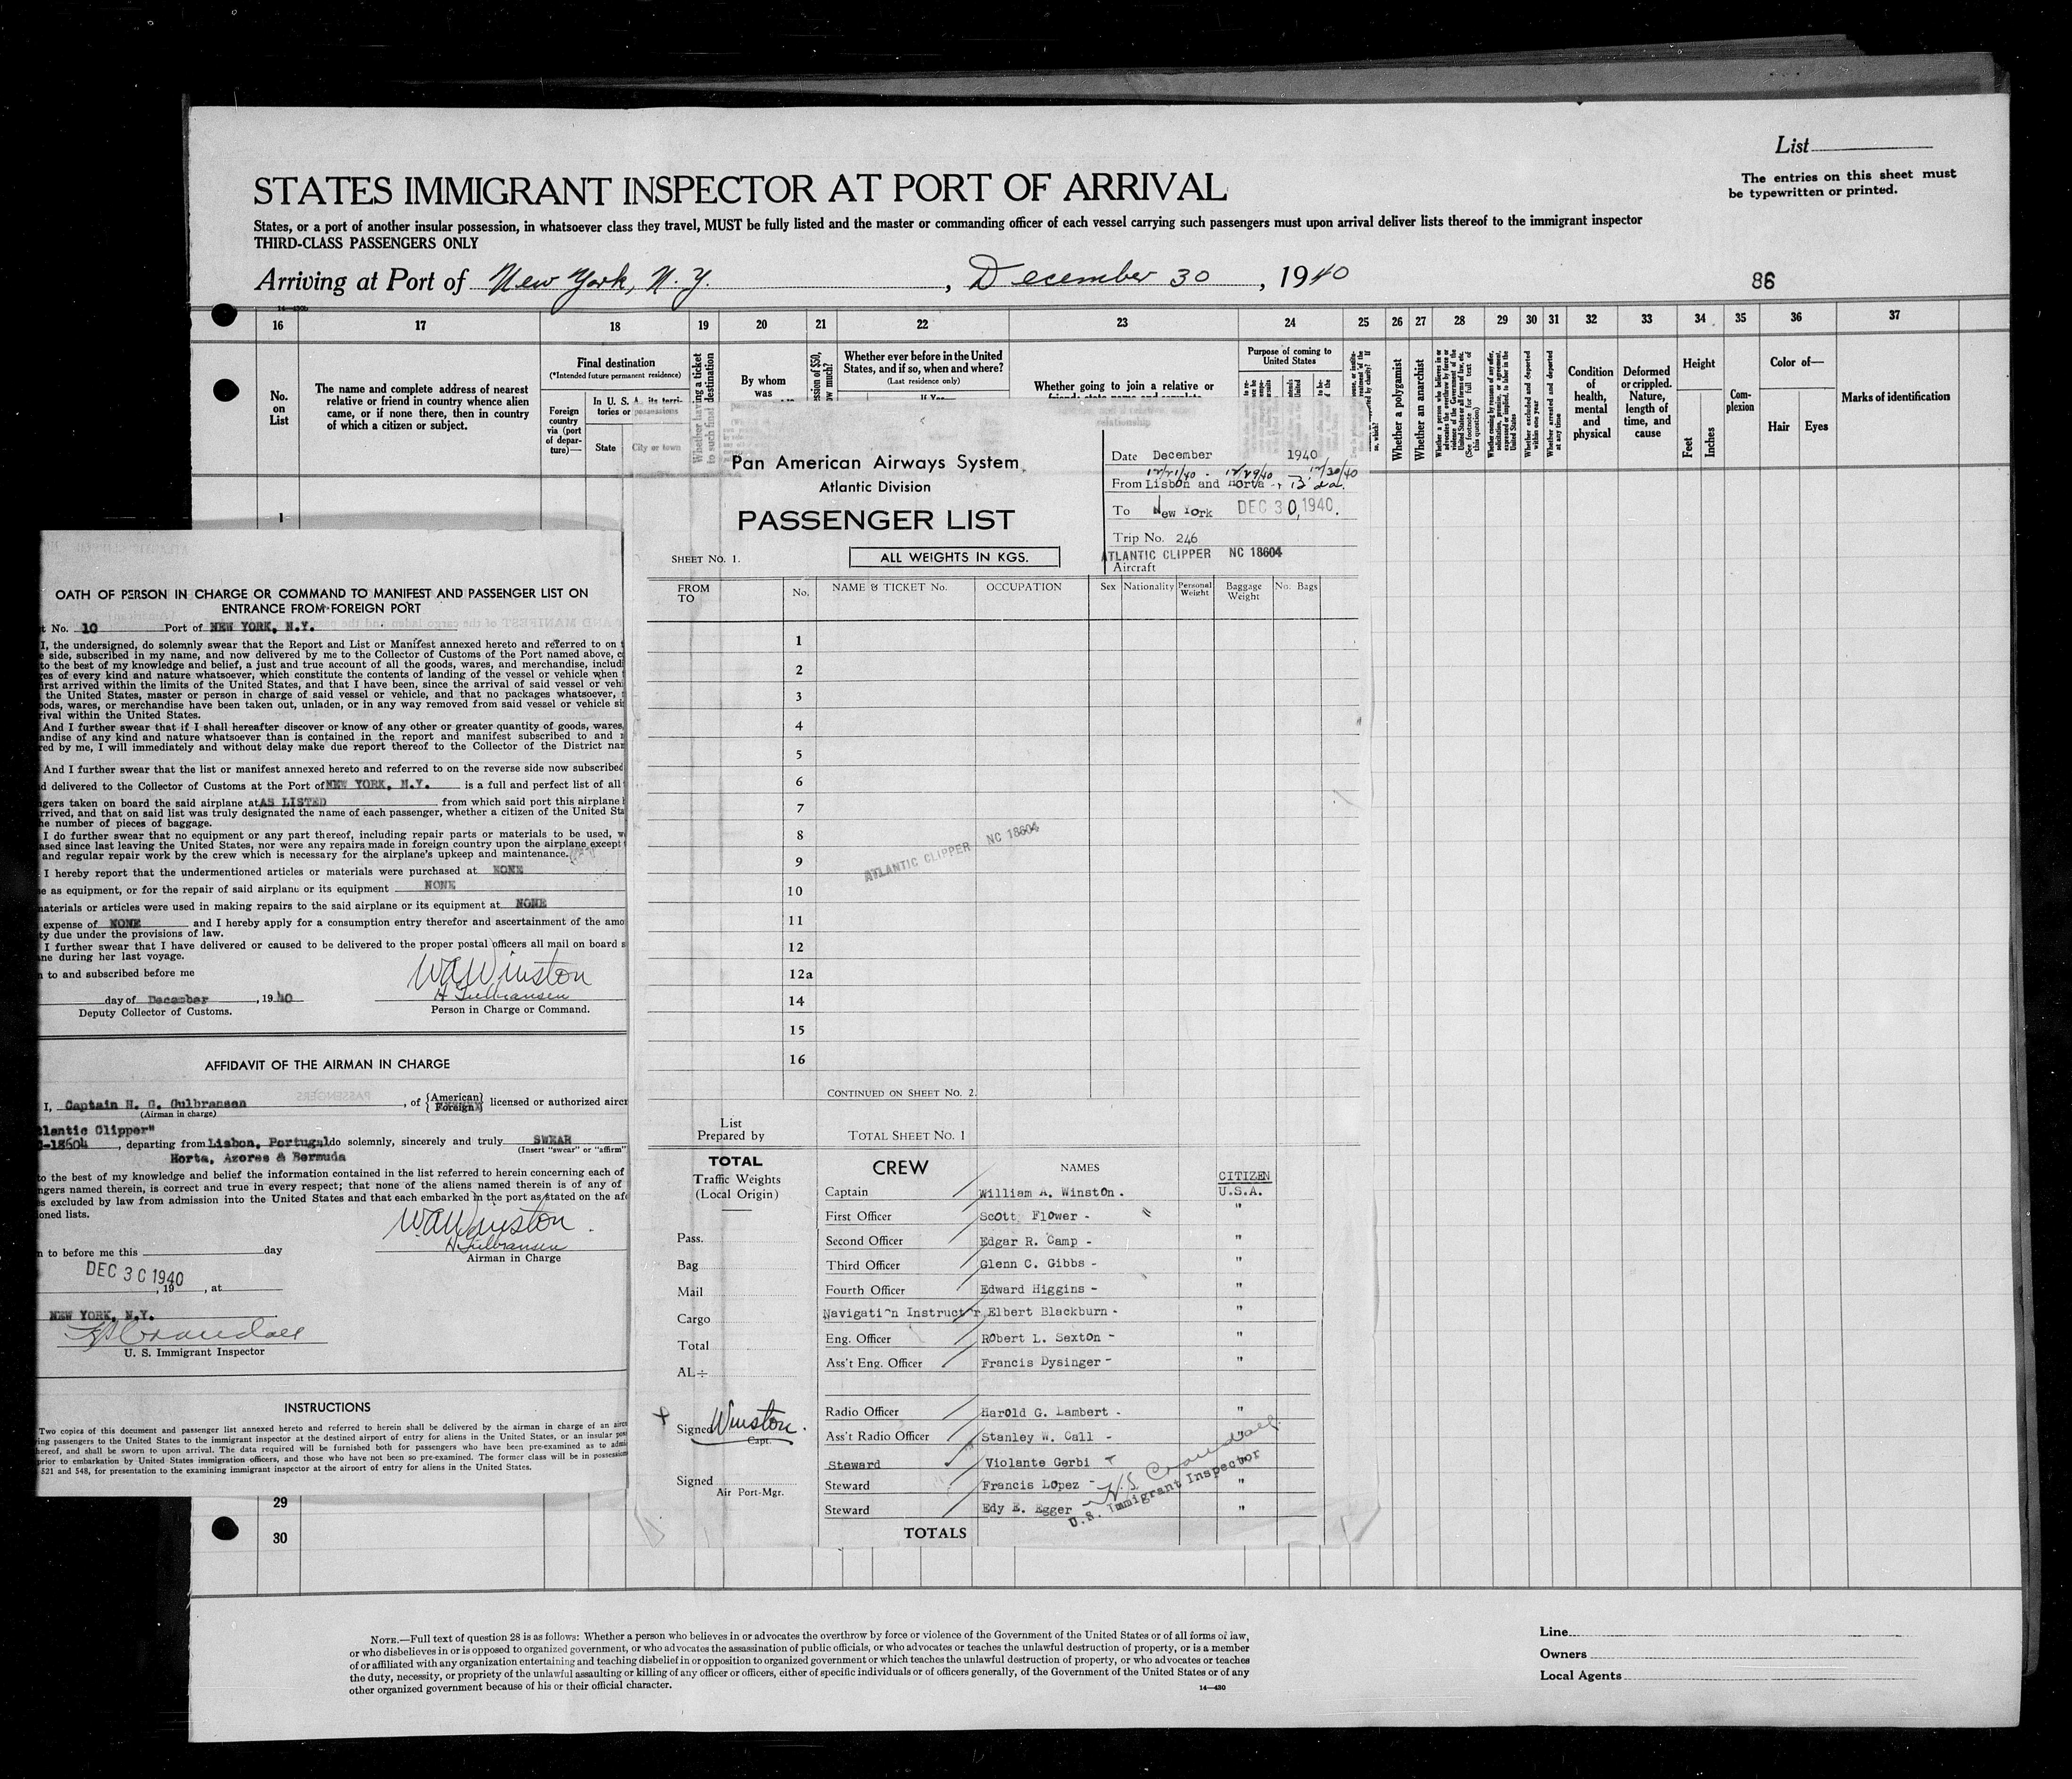 List
The entries on this sheet must
be typewritten or printed.
STATES IMMIGRANT INSPECTOR AT PORT OF ARRIVAL
States, or a port of another insular possession, in whatsoever class they travel, MUST be fully listed and the master or commanding officer of each vessel carrying such passengers must upon arrival deliver lists thereof to the immigrant inspector
THIRD-CLASS PASSENGERS ONLY
Arriving at Port of New York, N.Y. , December 30 , 1940
86
16 17 18 19 20 21 22 23 24 25 26 27 28 29 30 31 32 33 34 35 36 37
No.
on
List
The name and complete address of nearest
relative or friend in country whence alien
came, or if none there, then in country
of which a citizen or subject.
Final destination
(*Intended future permanent residence)
Foreign
country
via (port
of depar-
ture)—
In U. S. A. its terri-
tories or possessions
State
City or town
Whether having a ticket
to such final destination
By whom
was
Whether ever before in the United
States, and if so, when and where?
(Last residence only)
If Yes—
Whether going to join a relative or
Purpose of coming to
United States
Whether a polygamist
Whether an anarchist
Whether excluded and deported
within one year
Whether arrested and deported
at any time
Condition
of
health,
mental
and
physical
Deformed
or crippled.
Nature,
length of
time, and
cause
Height
Feet
Inches
Com-
plexion
Color of—
Hair
Eyes
Marks of identification
1
29
30
OATH OF PERSON IN CHARGE OR COMMAND TO MANIFEST AND PASSENGER LIST ON
ENTRANCE FROM FOREIGN PORT
No. 10 Port of NEW YORK, N.Y.
I, the undersigned, do solemnly swear that the Report and List or Manifest annexed hereto and referred to on
side, subscribed in my name, and now delivered by me to the Collector of Customs of the Port named above,
to the best of my knowledge and belief, a just and true account of all the goods, wares, and merchandise,
of every kind and nature whatsoever, which constitute the contents of landing of the vessel or vehicle when
arrived within the limits of the United States, and that I have been, since the arrival of said vessel or
the United States, master or person in charge of said vessel or vehicle, and that no packages whatsoever,
wares, or merchandise have been taken out, unladen, or in any way removed from said vessel or vehicle
within the United States.
And I further swear that if I shall hereafter discover or know of any other or greater quantity of goods, wares,
of any kind and nature whatsoever than is contained in the report and manifest subscribed to and
by me, I will immediately and without delay make due report thereof to the Collector of the District
And I further swear that the list or manifest annexed hereto and referred to on the reverse side now subscribed
delivered to the Collector of Customs at the Port of NEW YORK, N.Y. is a full and perfect list of all
taken on board the said airplane at AS LISTED from which said port this airplane
and that on said list was truly designated the name of each passenger, whether a citizen of the United
number of pieces of baggage.
I do further swear that no equipment or any part thereof, including repair parts or materials to be used,
since last leaving the United States, nor were any repairs made in foreign country upon the airplane except
and regular repair work by the crew which is necessary for the airplane's upkeep and maintenance.
I hereby report that the undermentioned articles or materials were purchased at NONE
as equipment, or for the repair of said airplane or its equipment NONE
materials or articles were used in making repairs to the said airplane or its equipment at NONE
expense of NONE and I hereby apply for a consumption entry therefor and ascertainment of the
due under the provisions of law.
I further swear that I have delivered or caused to be delivered to the proper postal officers all mail on board
during her last voyage.
to and subscribed before me
WAWinston
H Gulbransen
day of December , 1940
Deputy Collector of Customs.
Person in Charge or Command.
AFFIDAVIT OF THE AIRMAN IN CHARGE
I, Captain H. G. Gulbransen , of {American} {Foreign} licensed or authorized
(Airman in charge)
Clipper"
18604 , departing from Lisbon, Portugal do solemnly, sincerely and truly SWEAR
(Insert "swear" or "affirm"
Horta, Azores & Bermuda
to the best of my knowledge and belief the information contained in the list referred to herein concerning each of
named therein, is correct and true in every respect; that none of the aliens named therein is of any of
excluded by law from admission into the United States and that each embarked in the port as stated on the
lists.
WAWinston
H Gulbransen
to before me this day
Airman in Charge
DEC 30 1940
, 19 , at
NEW YORK, N.Y.
U. S. Immigrant Inspector
INSTRUCTIONS
Two copies of this document and passenger list annexed hereto and referred to herein shall be delivered by the airman in charge of an
passengers to the United States to the immigrant inspector at the destined airport of entry for aliens in the United States, or an insular
and shall be sworn to upon arrival. The data required will be furnished both for passengers who have been pre-examined as to
prior to embarkation by United States immigration officers, and those who have not been so pre-examined. The former class will be in
521 and 548, for presentation to the examining immigrant inspector at the airport of entry for aliens in the United States.
Pan American Airways System
Atlantic Division
PASSENGER LIST
SHEET NO. 1.
ALL WEIGHTS IN KGS.
Date December 1940
12/21/40 - 12/29/40 12/30/40
From Lisbon and Horta
To New York DEC 30, 1940.
Trip No. 246
ATLANTIC CLIPPER NC 18604
Aircraft
FROM
TO
No. NAME & TICKET No. OCCUPATION Sex Nationality Personal Weight Baggage Weight No. Bags
1
2
3
4
5
6
7
8
9
10
11
12
12a
14
15
16
ATLANTIC CLIPPER NC 18604
CONTINUED ON SHEET NO. 2.
List
Prepared by
TOTAL SHEET NO. 1
TOTAL
Traffic Weights
(Local Origin)
Pass.
Bag
Mail
Cargo
Total
AL÷
Signed Winston.
Capt.
Signed
Air Port-Mgr.
CREW NAMES CITIZEN
Captain William A. Winston. U.S.A.
First Officer Scott Flower - "
Second Officer Edgar R. Camp - "
Third Officer Glenn C. Gibbs - "
Fourth Officer Edward Higgins - "
Navigati^n Instruct r Elbert Blackburn - "
Eng. Officer Robert L. Sexton - "
Ass't Eng. Officer Francis Dysinger - "
Radio Officer Harold G. Lambert - "
Ass't Radio Officer Stanley W. Call - "
Steward Violante Gerbi "
Steward Francis Lopez - "
Steward Edy E. Egger - "
U.S. Immigrant Inspector
TOTALS
NOTE.—Full text of question 28 is as follows: Whether a person who believes in or advocates the overthrow by force or violence of the Government of the United States or of all forms of law,
or who disbelieves in or is opposed to organized government, or who advocates the assassination of public officials, or who advocates or teaches the unlawful destruction of property, or is a member
of or affiliated with any organization entertaining and teaching disbelief in or opposition to organized government or which teaches the unlawful destruction of property, or who advocates or teaches
the duty, necessity, or propriety of the unlawful assaulting or killing of any officer or officers, either of specific individuals or of officers generally, of the Government of the United States or of any
other organized government because of his or their official character.
14—430
Line
Owners
Local Agents